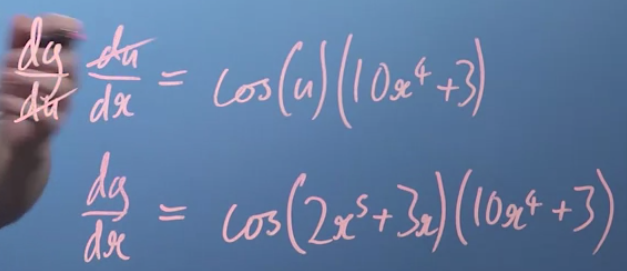 dy/du du/dx = cos(u)(10x⁴+3)
dy/dx = cos(2x⁵+3x)(10x⁴+3)